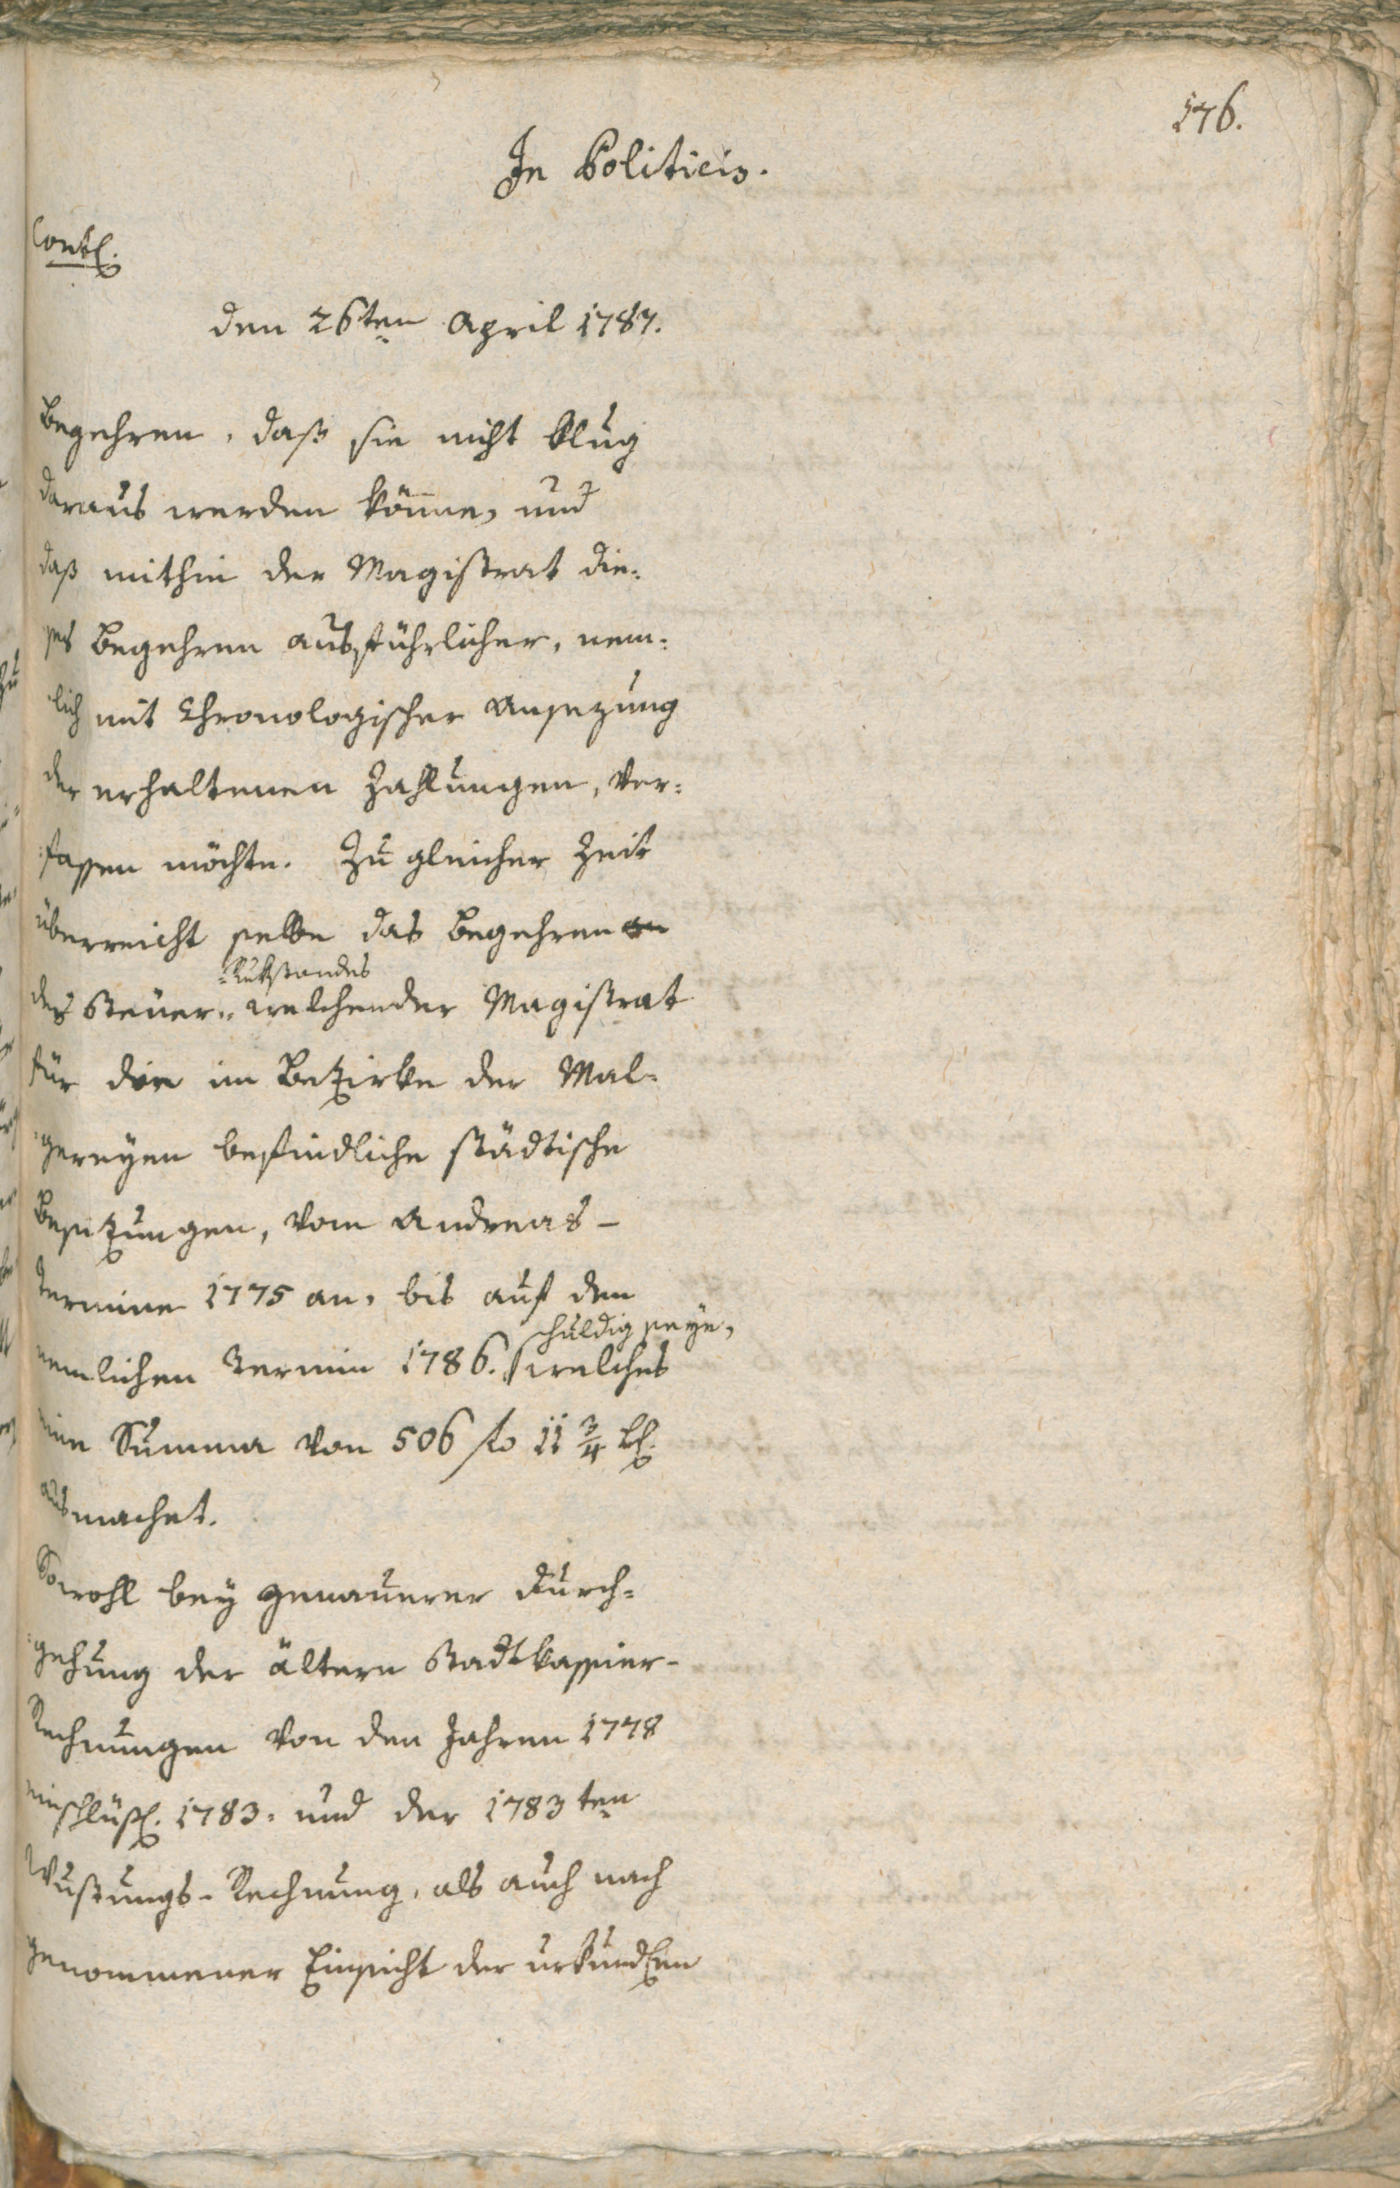 176.
In Politicis.
Contl.
den 26ten April 1787.
Begehren, daß sie nicht klug
daraus werden könne, und
daß mithin der Magistrat die=
ses Begehren ausführlicher, nem=
lich mit Chronologischer Ansezung
der erhaltenen Zahlungen, ver=
fassen möchte. Zu gleicher Zeit
überreicht selbe das Begehren
=Rukstandes
des Steuer= welchen der Magistrat
für die im Bezirke der Mal=
gereyen befindliche städtische
Besitzungen, vom Andreas-
Termine 1775 an, bis auf den
schuldig seye,
nemlichen Termin 1786. welches
eine Summa von 506 fl 11 3/4 kr
ausmachet.
Sowohl bey genauerer Durch=
gehung der ältern Stadtkassier-
Rechnungen von den Jahren 1778
einschlüßl. 1783. und der 1783ten
Wustungs-Rechnung, als auch nach
genommener Einsicht der urkundlichen